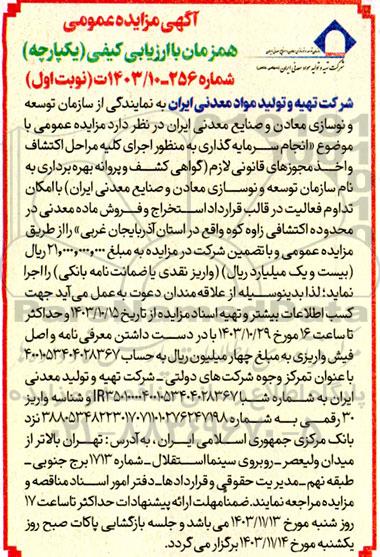 آگهی مزایده عمومی
همزمان با ارزیابی کیفی (یکپارچه)
شماره ۲۵۶-۱۴۰۳/۱۰ت (نوبت اول)
شرکت تهیه و تولید مواد معدنی ایران
شرکت تهیه و تولید مواد معدنی ایران به نمایندگی از سازمان توسعه
و نوسازی معادن و صنایع معدنی ایران در نظر دارد مزایده عمومی با
موضوع «انجام سرمایه گذاری به منظور اجرای کلیه مراحل اکتشاف
و اخذ مجوزهای قانونی لازم (گواهی کشف و پروانه بهره برداری به
نام سازمان توسعه و نوسازی معادن و صنایع معدنی ایران) با امکان
تداوم فعالیت در قالب قرارداد استخراج و فروش ماده معدنی در
محدوده اکتشافی زاوه کوه واقع در استان آذربایجان غربی» را از طریق
مزایده عمومی و با تضمین شرکت در مزایده به مبلغ ۲۱,۰۰۰,۰۰۰,۰۰۰ ریال
(بیست و یک میلیارد ریال) (واریز نقدی یا ضمانت نامه بانکی) را اجرا
نماید؛ لذا بدینوسیله از علاقه مندان دعوت به عمل می آید جهت
کسب اطلاعات بیشتر و تهیه اسناد مزایده از تاریخ ۱۴۰۳/۱۰/۱۵ و حداکثر
تا ساعت ۱۶ مورخ ۱۴۰۳/۱۰/۲۹ با در دست داشتن معرفی نامه و اصل
فیش واریزی به مبلغ چهار میلیون ریال به حساب ۴۰۰۱۰۵۳۴۰۴۰۲۸۳۶۷
با عنوان تمرکز وجوه شرکت های دولتی_ شرکت تهیه و تولید معدنی
ایران به شماره شبا IR۳۵۰۱۰۰۰۰۴۰۰۱۰۵۳۴۰۴۰۲۸۳۶۷ و شناسه واریز
۳۰ رقمی به شماره ۳۸۸۰۵۳۴۸۲۲۳۰۱۷۰۷۱۱۰۱۰۲۷۶۲۴۷۱۹۸ نزد
بانک مرکزی جمهوری اسلامی ایران، به آدرس: تهران بالاتر از
میدان ولیعصر - روبروی سینما استقلال - شماره ۱۷۱۳ برج جنوبی -
طبقه نهم - مدیریت حقوقی و قراردادها - دفتر امور اسناد مناقصه و
مزایده مراجعه نمایند. ضمنا مهلت ارائه پیشنهادات حداکثر تا ساعت ۱۷
روز شنبه مورخ ۱۴۰۳/۱۱/۱۳ می باشد و جلسه بازگشایی پاکات صبح روز
یکشنبه مورخ ۱۴۰۳/۱۱/۱۴ برگزار می گردد.